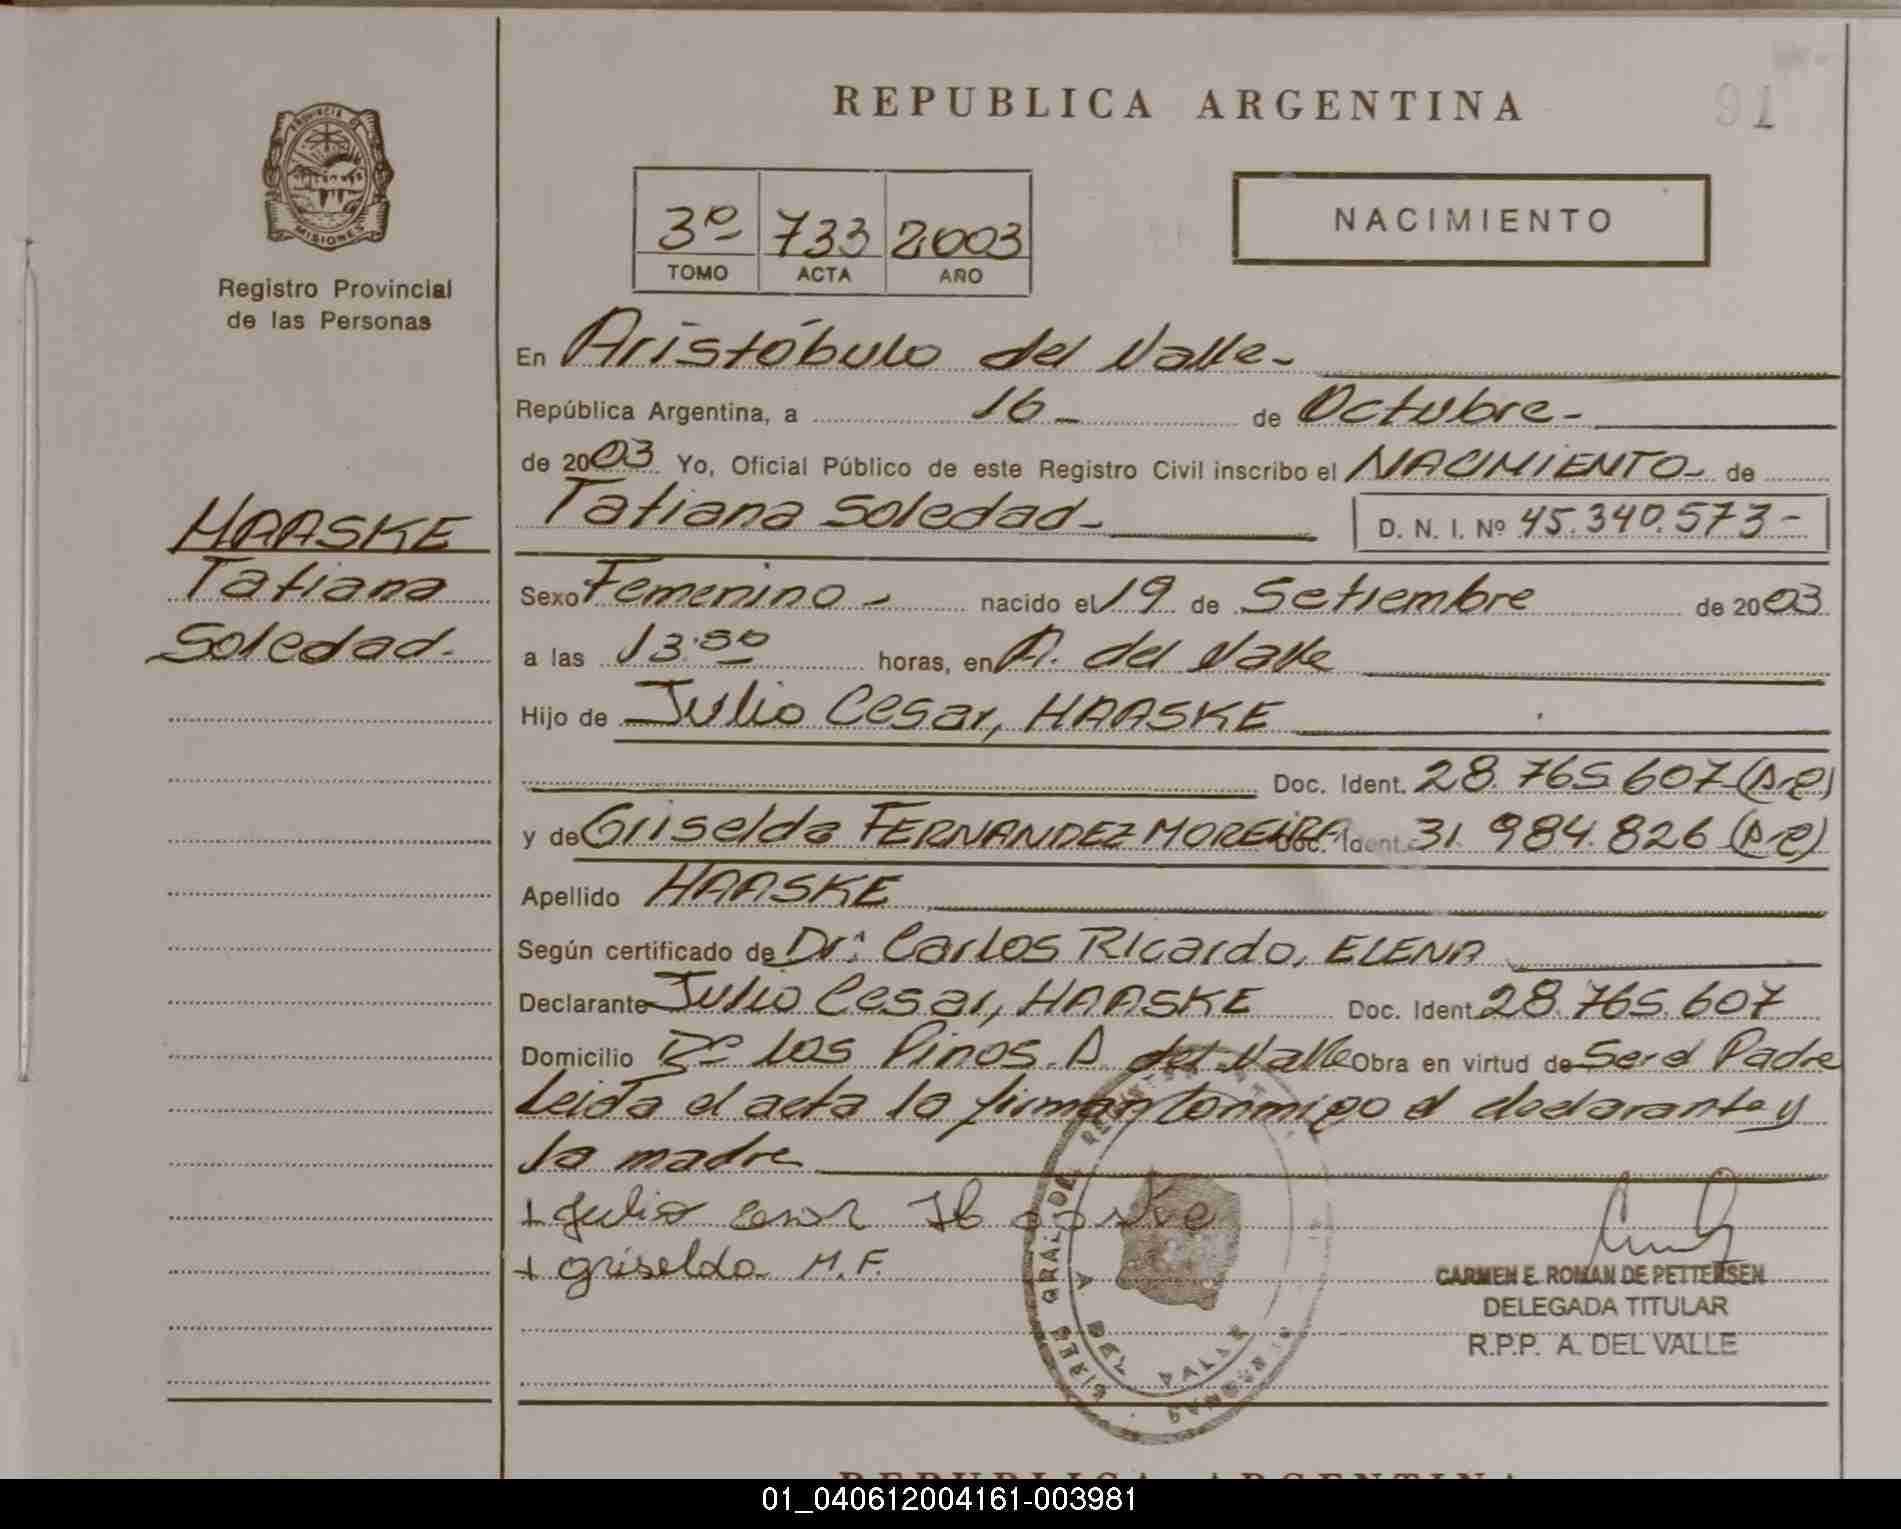 REPUBLICA ARGENTINA
91
PROVINCIA D
MISIONES
Registro Provincial
de las Personas
3º 733 2003
TOMO ACTA AÑO
NACIMIENTO
En Aristóbulo del Valle-
República Argentina, a 16- de Octubre-
de 2003 Yo, Oficial Público de este Registro Civil inscribo el NACIMIENTO- de
Tatiana Soledad- D. N. I. Nº 45.340.573-
HAASKE
Tatiana
Soledad.
Sexo Femenino- nacido el 19 de Setiembre de 2003
a las 13:50 horas, en A. del Valle
Hijo de Julio Cesar, HAASKE
Doc. Ident. 28.765.607
y de Griselda FERNANDEZ MOREIRA Doc. Ident. 31.984.826
Apellido HAASKE
Según certificado de Dr: Carlos Ricardo, ELENA
Declarante Julio Cesar, HAASKE Doc. Ident. 28.765.607
Domicilio Bº Los Pinos. A. del Valle Obra en virtud de Ser el Padre
Leida el acta la firman conmigo el declarante y
la madre
+ Julio cesar Haaske
+ griselda M.F.
CARMEN E. ROMAN DE PETTERSEN
DELEGADA TITULAR
R.P.P. A. DEL VALLE
A DEL VALLE
REPUBLICA ARGENTINA
01_040612004161-003981